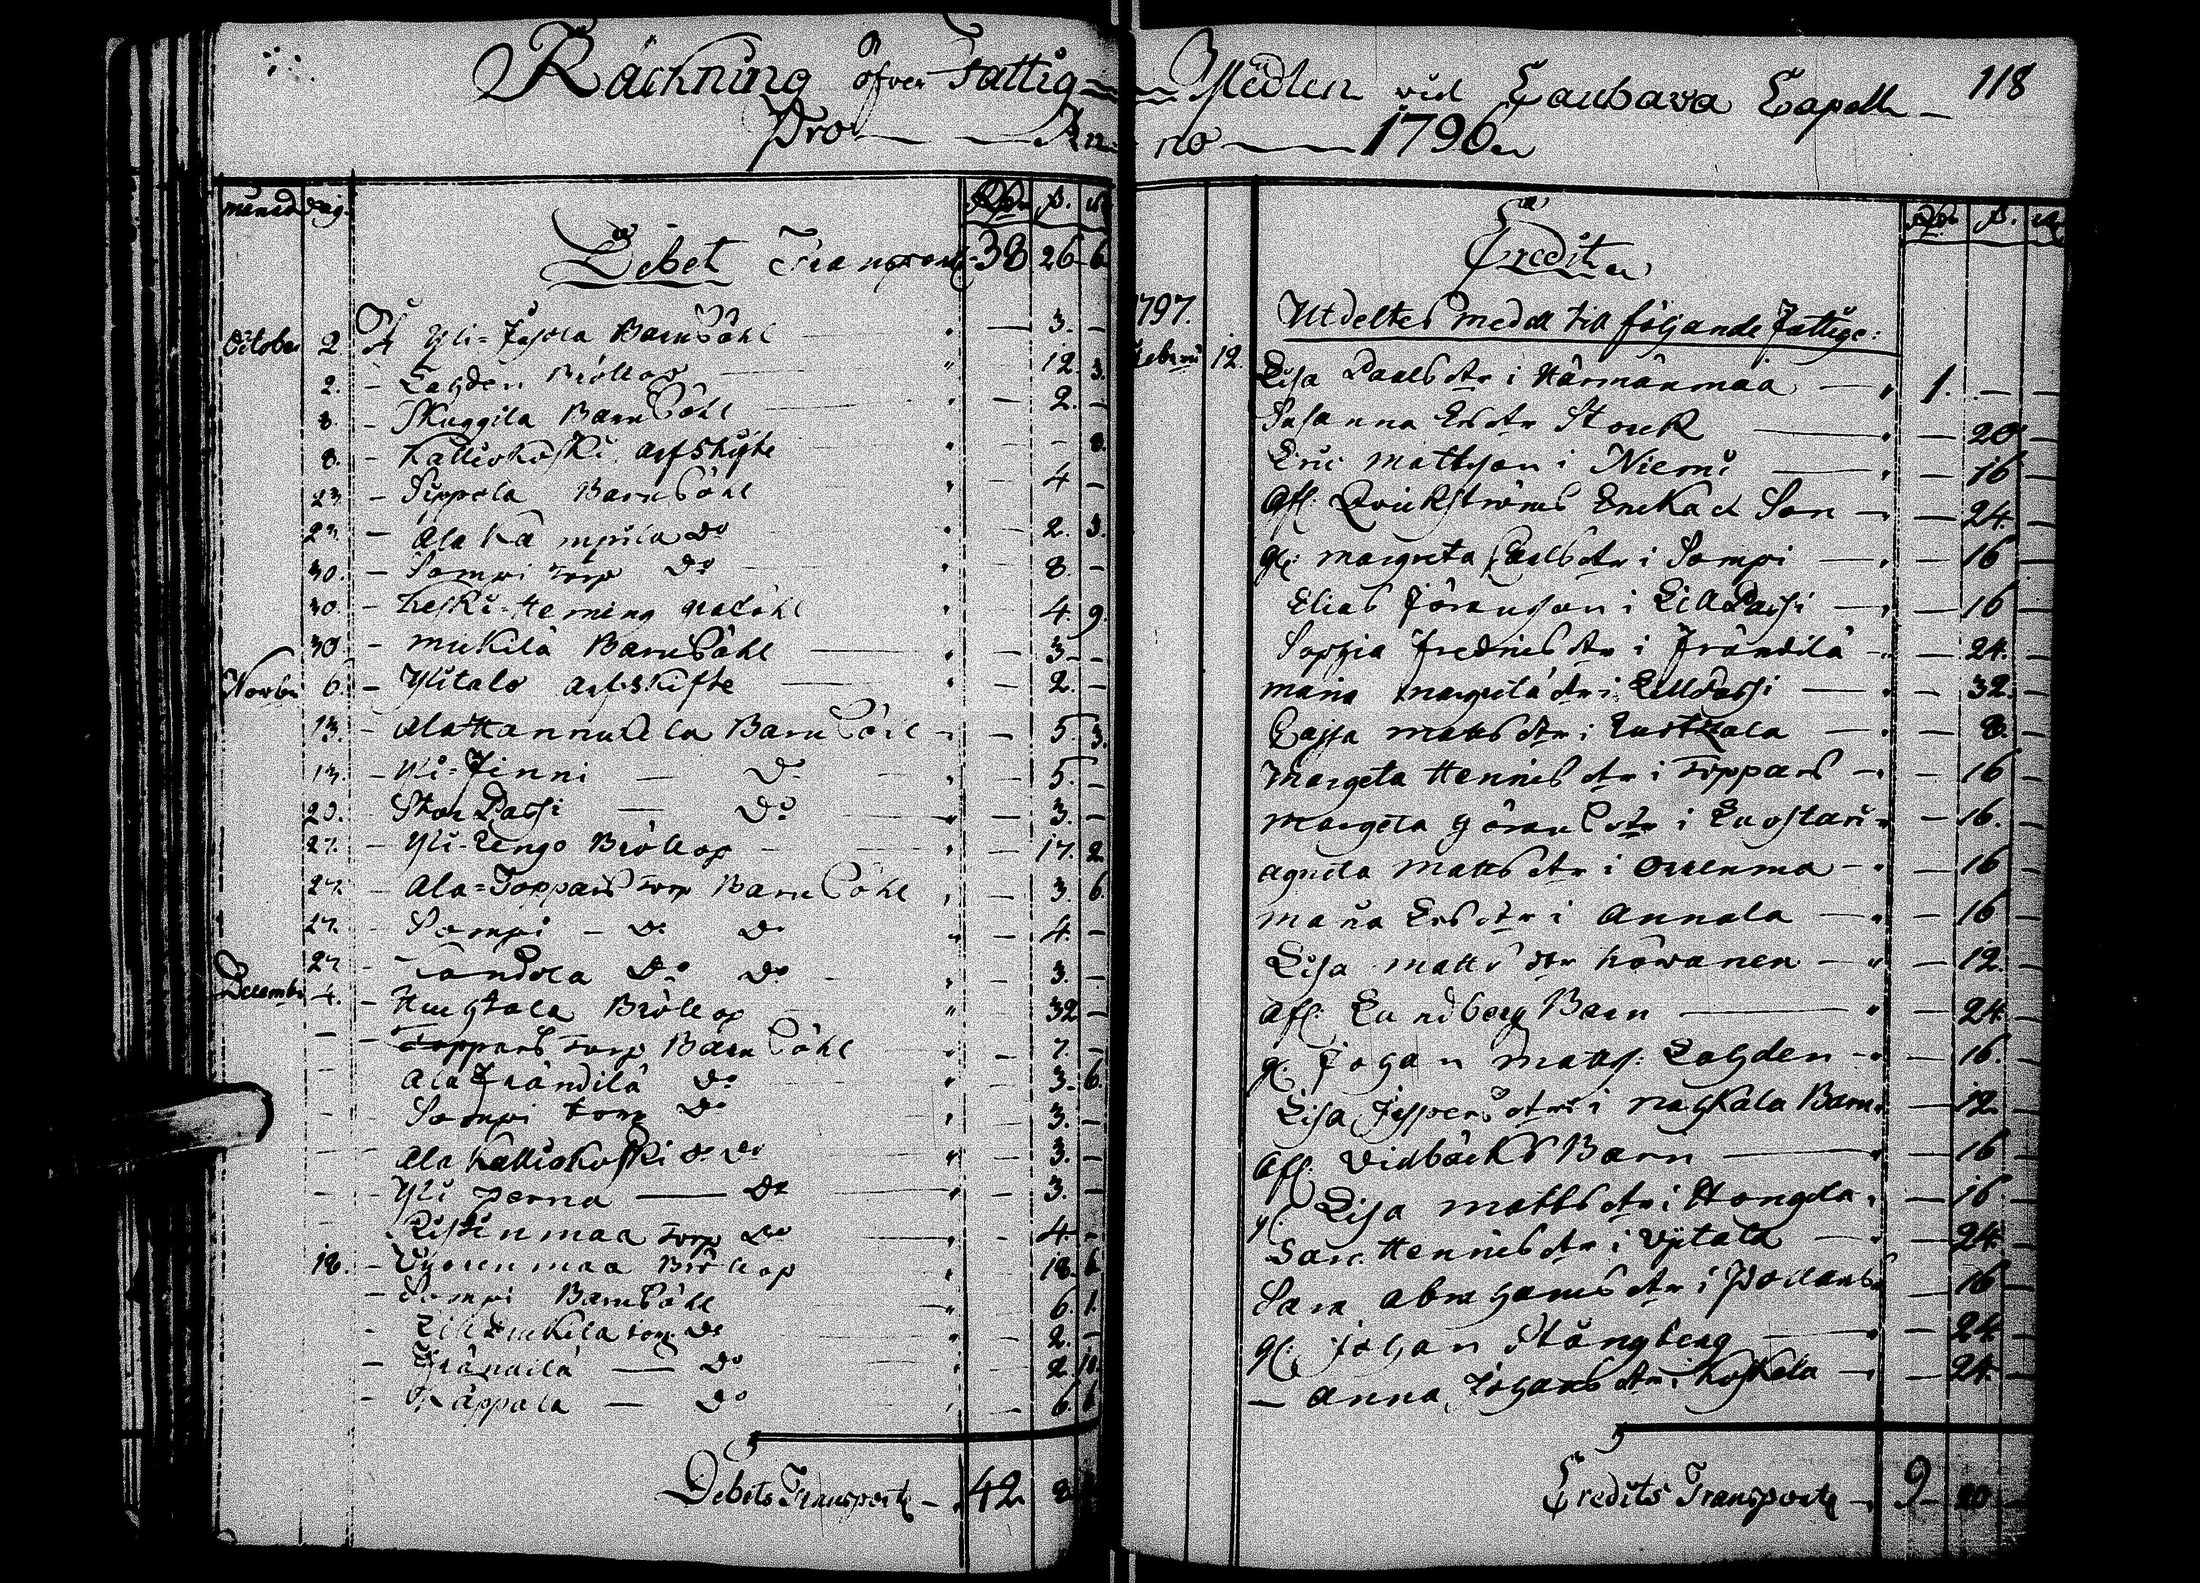 Räckning öfver Fattig Medlen vid Laubava Capell 118
Pro Anno 1796
månad dag. Rdr ß. rst
Debet Transport 38 26 6
October 2 Af Yli-Jysola BarnsÖhl " — 3. —
2. — Lahden Bröllop " 12. 3.
8. — Skuggila BarnsÖhl " — 2. —
8. — Kallickoski Arfskifte " — — 8.
23 — Sippola BarnsÖhl " — 4 —
23. — Ala Kämpila Do " — 2. 3.
30. — Sompi torp Do " — 8. —
30. — Keski-Heming Graföhl " 4. 9.
30. — Mickilä BarnsÖhl — " — 3. —
Novbr 6. — Ylitalo Arfskifte " — 2. —
13. — Ala Hannuksela BarnsÖhl — 5. 3.
13. — Yli-Jinni — Do — 5. —
20. — Stor Passi — Do " — 3. —
27. — Yli-Rengo Bröllop " — 17. 2
27. — Ala-Toppars torp BarnsÖhl " — 3. 6.
27. — Sompi — Do Do " — 4. —
27. — Tandola Do Do " — 3. —
Decembr 4. — Huhtala Bröllop " 32 —
— Toppars torp BarnsÖhl " — 7. —
Ala Frändilä Do " — 3. 6.
Sompi torp Do " — 3. —
— Ala Kallickoski Do Do " — 3. —
— Yli Perna — Do " — 3. —
Ristinmaa torp Do " - 4. -
18. — Bröllop " 18. 6
— Sompi BarnsÖhl " — 6. 1.
— Lill Mickila torp Do " — 2. —
— Frändilä — Do " 2. 10
— Käppala — Do " — 6. 6
Debets Transport — 42 8.
Rdr ß. rst
Credit
1797.
Utdeltes medel till följande Fattige:
Februarii 12. Lisa Paalsdtr i Härmänmaa — " 1. — —
Susanna Ersdtr Stock — " — 20 —
Eric Mattsson i Niemi — " — 16 —
Afl: Qvickströms Enka et Son — " — 24. —
gl: Margreta Carlsdtr i Sompi — " — 16 —
Elias Jöransson i Lill Passi — " — 16 —
Sophia Fredricsdtr i Frändilä — 24. —
Maria dtr i Lill Passi — " — 32. —
Cajsa Mattsdtr i — " — 8. —
Margeta Hennicsdtr i Toppars — " — 16 —
Margeta Göransdtr i Luostari " — 16. —
Agneta Mattsdtr i — " — 16 —
Maria Ersdtr i Annala — " — 16 —
Lisa Matts dtr Kowanen — " — 12. —
Afl: Lundberg Barn — " — 24. —
gl: Johan Matts: Lahden — " — 16. —
Lisa Jespersdtrs i Nahkala Barn " — 12. —
Afl: Vidbäcks Barn — " — 16 —
gl: Lisa Mattsdtr i Hongela " — 16 —
Sara Hennicsdtr i — " — 24. —
Sara Abrahamsdtr i " — 16 —
gl: Johan Stångberg — " — 24. —
— Anna Johansdtr i Koskela — " — 24. —
Credits Transport — 9 — 20 —